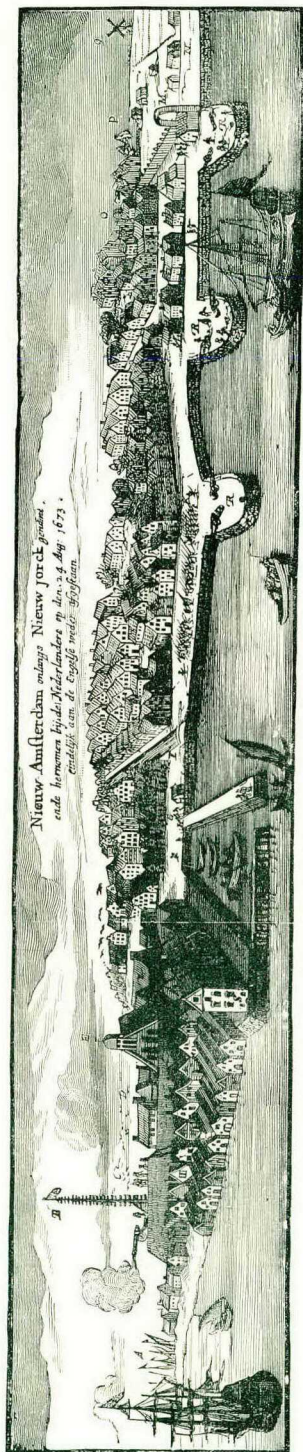 Nieuw Amsterdam onlangs Nieuw Jorck genaemt,
ende hernomen bij de Nederlanders op den 24 Aug: 1673,
eindelijk aan de Engelse weder afgestaan
B
E
O
P
Q
R
R
R